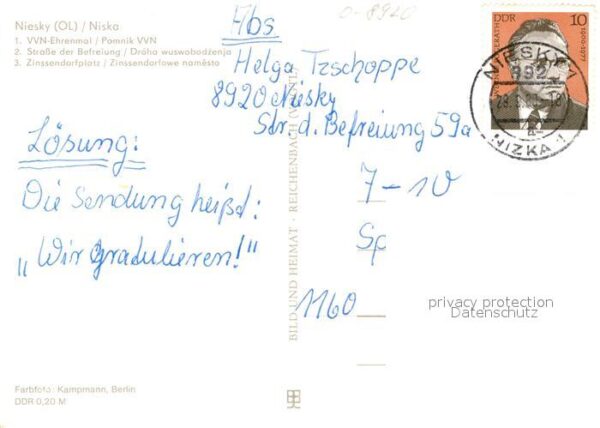 Niesky (OL) / Niska
1. VVN-Ehrenmal / Pomnik VVN
2. Straße der Befreiung / Dróha wuswobodźenja
3. Zinssendarfplatz / Zinssendorfowe naměsto
Abs
0-8920
Helga Tzschoppe
8920 Niesky
Str. d. Befreiung 59a
Lösung:
Die Sendung heißt:
„Wir gradulieren!"
7-10
Sp
1160
BILD UND HEIMAT · REICHENBACH (VOGTL)
DDR 10
1909-1977
NIESKY 1
892
NIZKA 1
privacy protection
Datenschutz
Farbfoto: Kampmann, Berlin
DDR 0,20 M